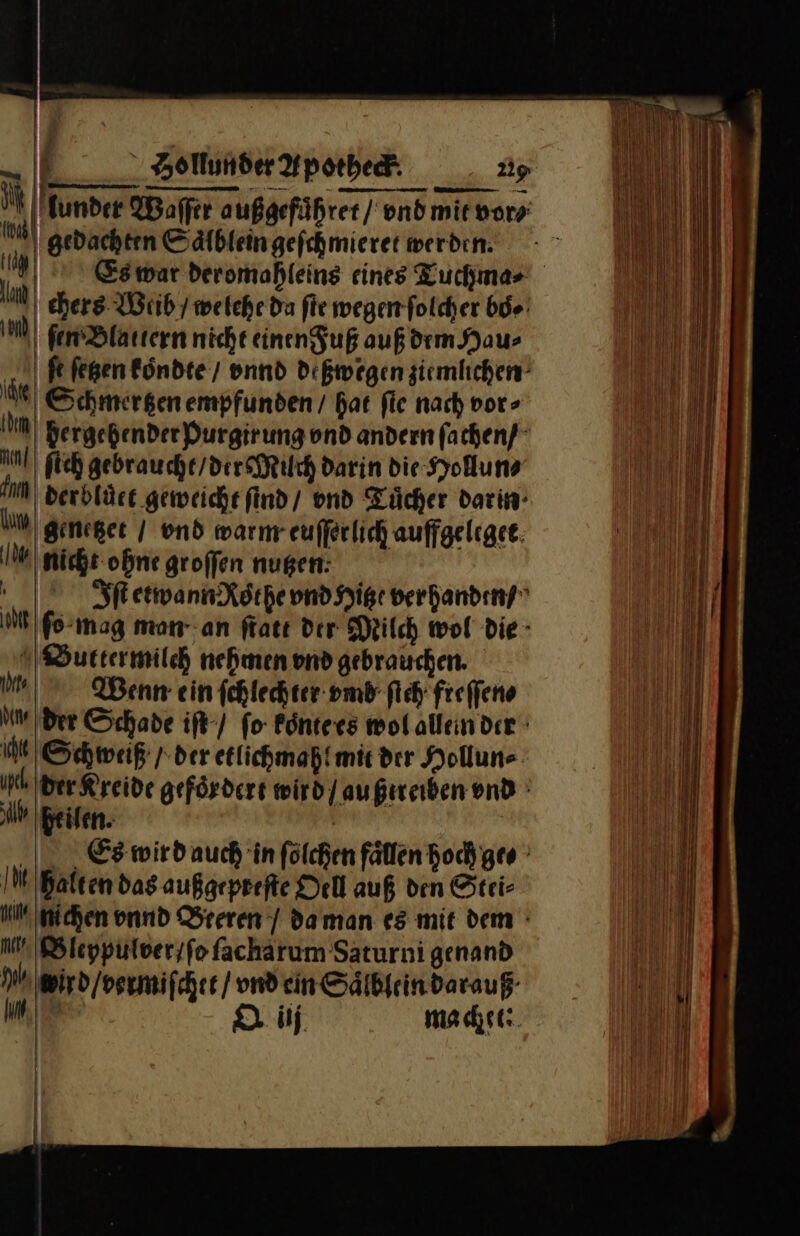 Hollunder Apotheck.
lunder Waſſer außgefuͤhret / vnd mit vor⸗
gedachten Saͤlblein geſchmieret werden.
Es war deromahleins eines Tuchma⸗
chers Weib / welche da ſie wegen ſolcher boͤ⸗
ſen Blattern nicht einen Fuß auß dem Hau⸗
ſe ſetzen koͤndte / vnnd deßwegen ziemlichen
Schmertzen empfunden / hat ſie nach vor⸗
hergehender Purgirung vnd andern ſachen /
ſich gebraucht / der Milch darin die Hollun⸗
derbluͤet geweicht ſind / vnd Tuͤcher darin
genetzet / vnd warm euſſerlich auffgeleget
nicht ohne groſſen nutzen:
Iſt etwann Roͤthe vnd Hitze verhanden /
ſo mag man an ſtatt der Milch wol die
Buttermilch nehmen vnd gebrauchen.
Wenn ein ſchlechter vmb ſich freſſen⸗
der Schade iſt / ſo koͤnte es wol allein der
Schweiß / der etlichmahl mit der Hollun⸗
der Kreide gefoͤrdert wird / außtreiben vnd
heilen.
Es wird auch in ſolchen faͤllen hoch ge⸗
halten das außgepreſte Oell auß den Stei⸗
nichen vnnd Beeren / da man es mit dem
Bleypulver / ſo ſacharum Saturni genand
wird / vermiſchet / vnd ein Saͤlblein darauß
Q iij machet: